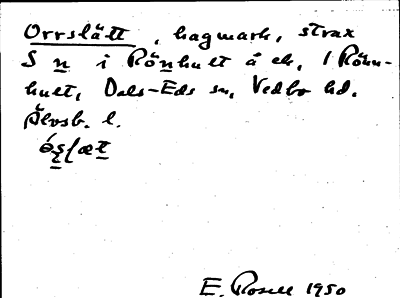 Orrslätt, hagmark, strax
S n i Rönhult å ek, / Rönn-
hult, Dals-Eds sn, Vedbo hd.
Älvsb. l.
E. Rosell 1950